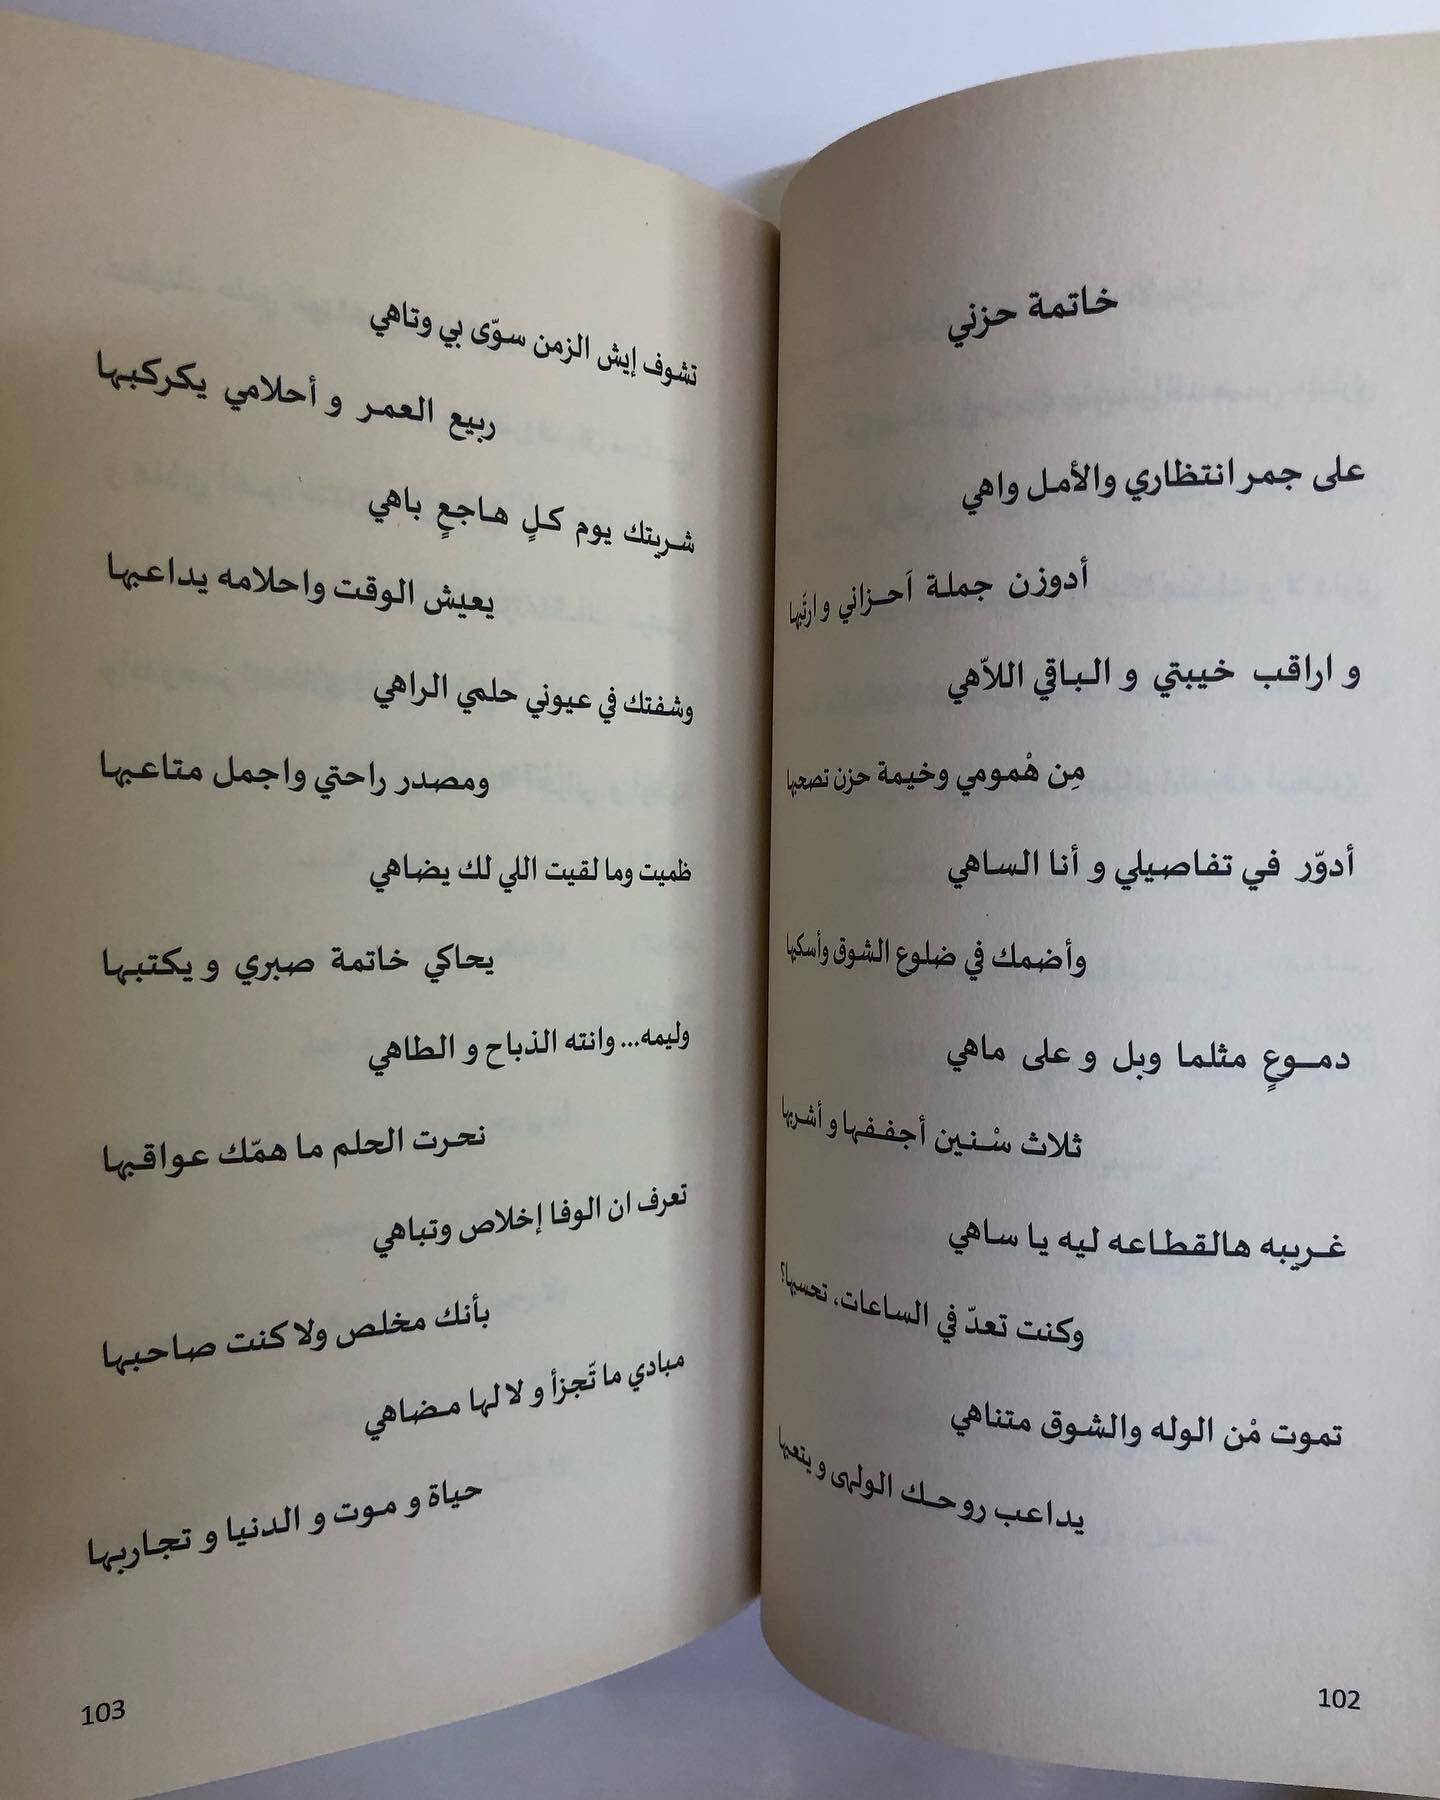 خاتمة حزني
على جمر انتظاري والأمل واهي
أدوزن جملة آحزاني و ارتّبها
و اراقب خيبتي و الباقي اللاّهي
مِن هْمومي وخيمة حزن تصحبها
أدوّر في تفاصيلي و أنا الساهي
وأضمك في ضلوع الشوق وأسكبها
دموعٍ مثلما وبل و على ماهي
ثلاث سْنين أجففها و أشربها
غريبه هالقطاعه ليه يا ساهي
وكنت تعدّ في الساعات، تحسبها؟
تموت مْن الوله والشوق متناهي
يداعب روحك الولهى و يتعبها
102
تشوف إيش الزمن سوّى بي وتاهي
ربيع العمر و أحلامي يكركبها
شريتك يوم كلٍ هاجعٍ باهي
يعيش الوقت واحلامه يداعبها
وشفتك في عيوني حلمي الراهي
ومصدر راحتي واجمل متاعبها
ظميت وما لقيت اللي لك يضاهي
يحاكي خاتمة صبري و يكتبها
وليمه... وانته الذباح و الطاهي
نحرت الحلم ما همّك عواقبها
تعرف ان الوفا إخلاص وتباهي
بأنك مخلص ولا كنت صاحبها
مبادي ما تّجزأ و لا لها مضاهي
حياة و موت و الدنيا و تجاربها
103